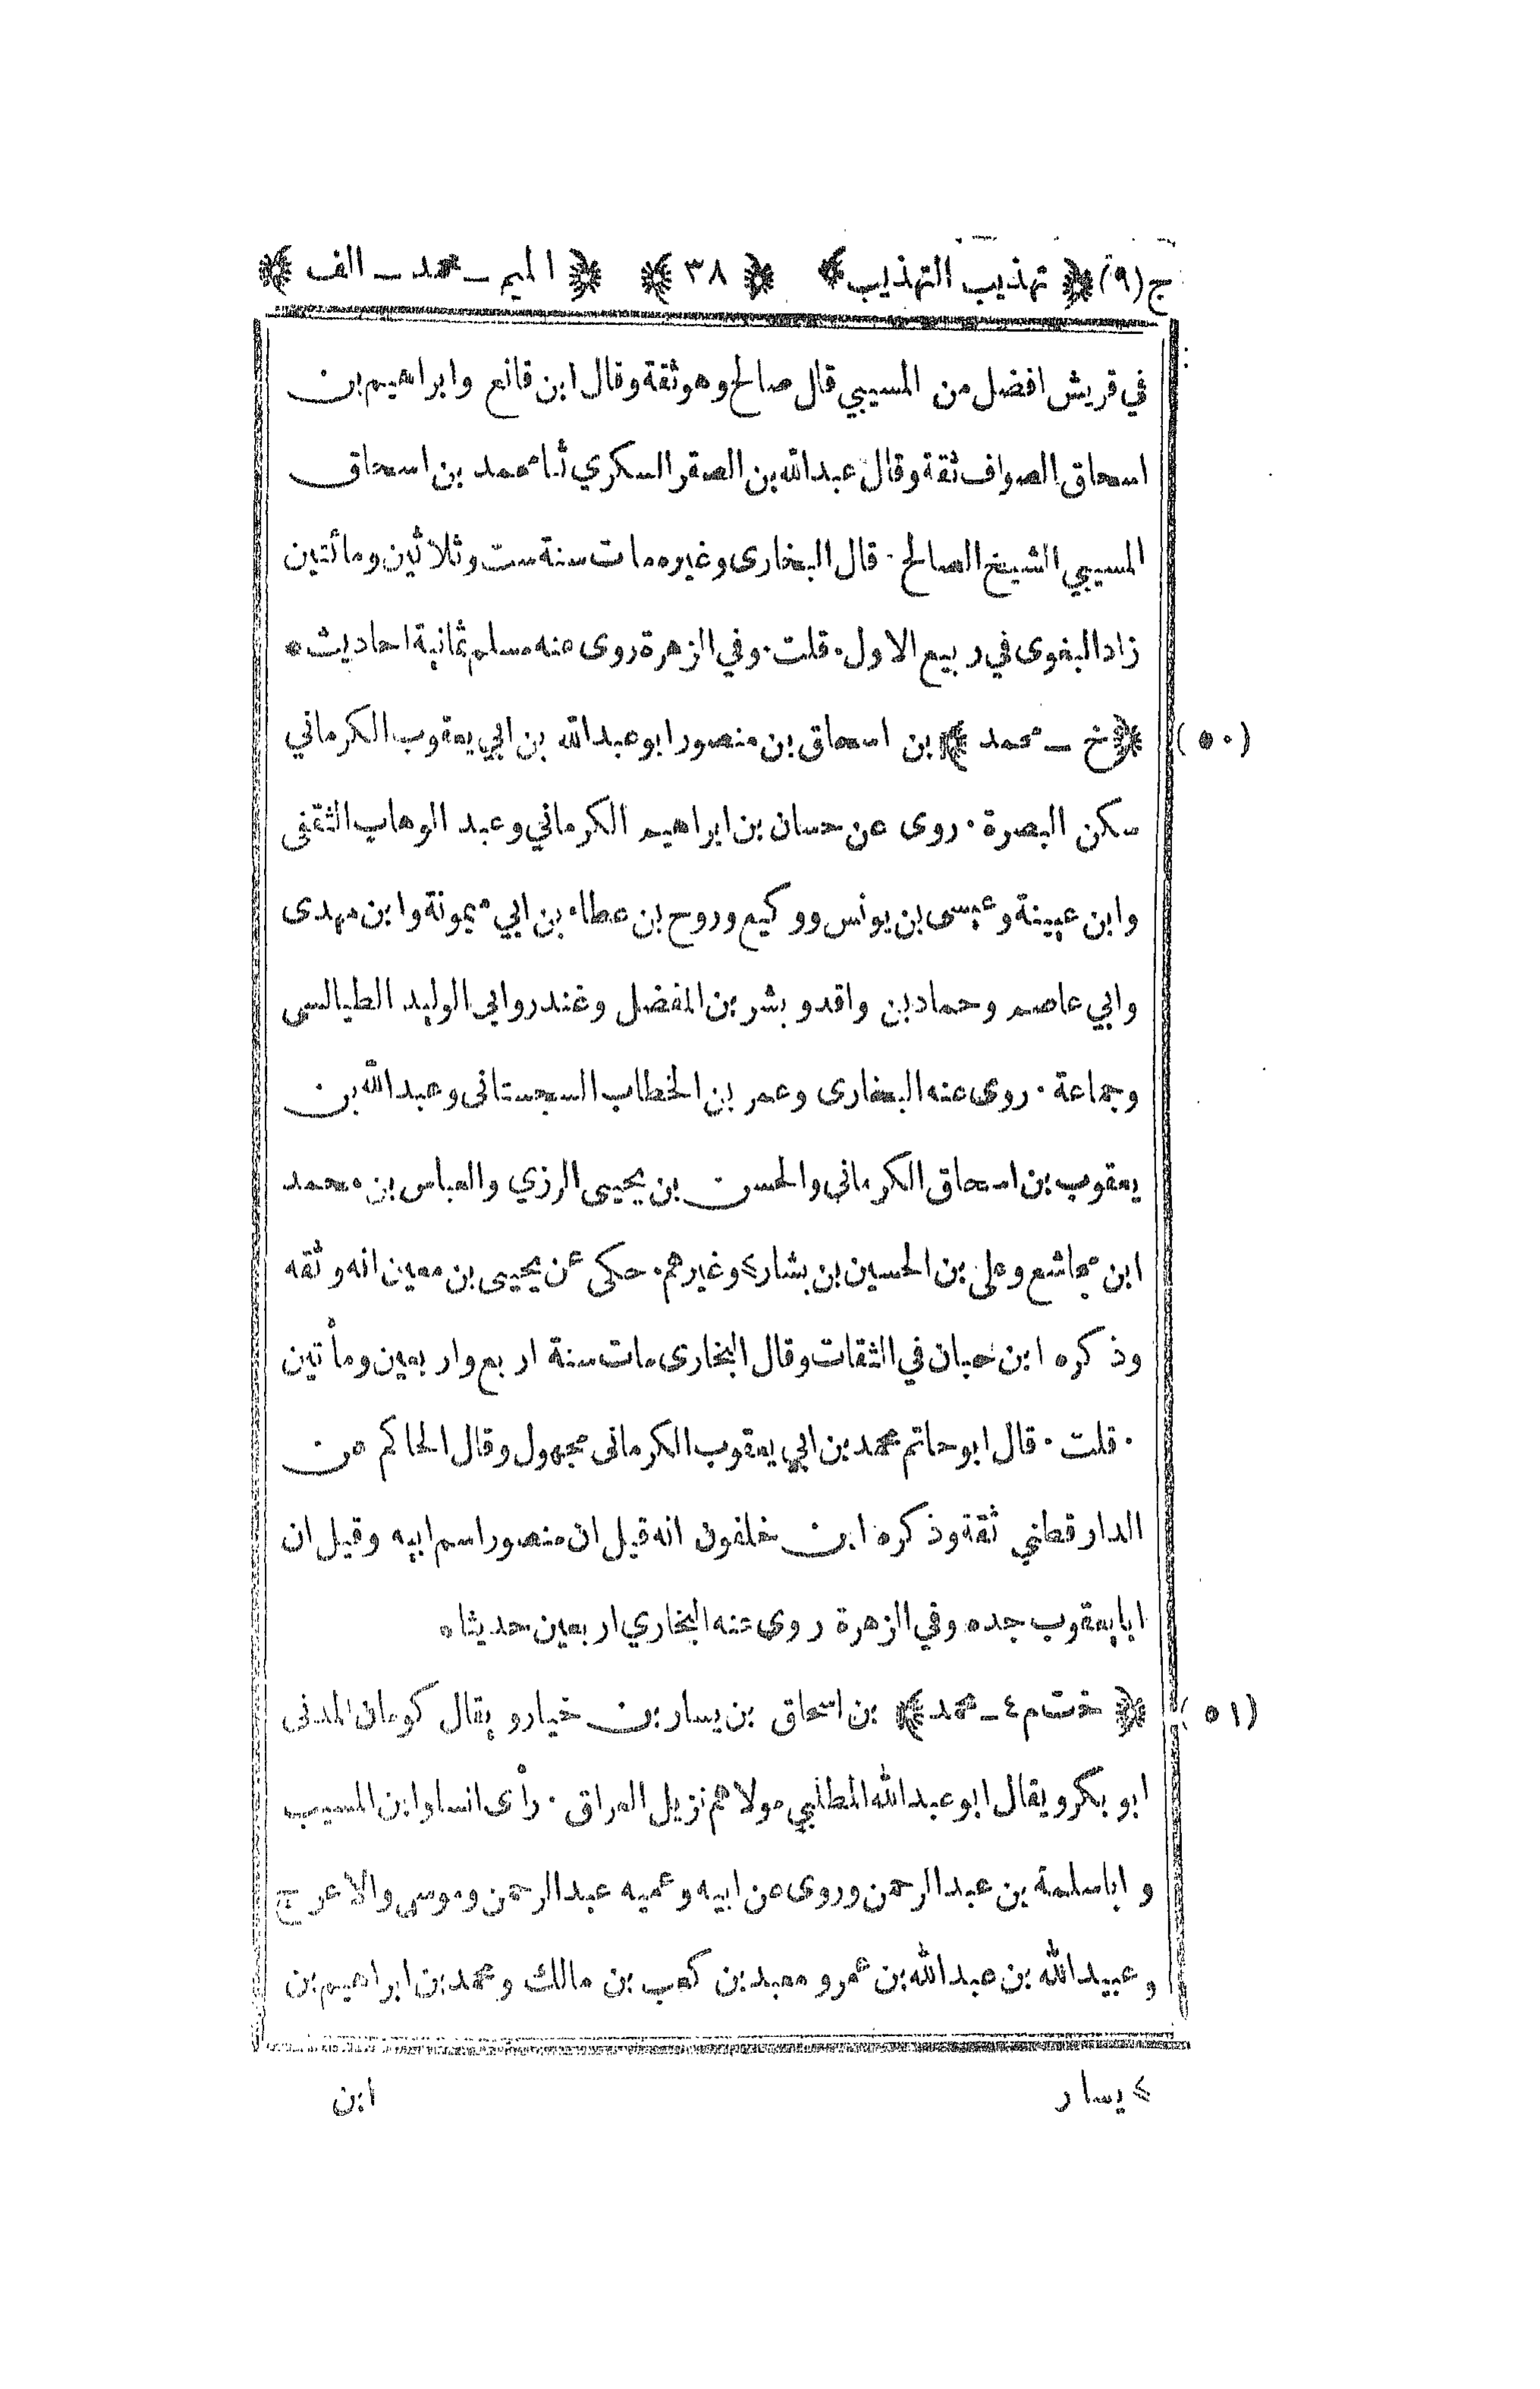 ج (٩) ﴿ تهذيب التهذيب ﴾ ﴿ ٣٨ ﴾ ﴿ الميم ـ محمد ـ الف ﴾
في قريش افضل من المسيبي قال صالح وهو ثقة وقال ابن قانع وابراهيم بن
اسحاق الصواف ثقة وقال عبدالله بن الصقر السكري ثنا محمد بن اسحاق
المسيبي الشيخ الصالح ٠ قال البخارى وغيره مات سنة ست وثلاثين ومائتين
زاد البغوى في ربيع الاول ٠ قلت ٠ وفي الزهرة روى عنه مسلم ثمانية احاديث ٠
(٥٠) ﴿ خ ـ محمد ﴾ بن اسحاق بن منصور ابو عبدالله بن ابي يعقوب الكرماني
سكن البصرة ٠ روى عن حسان بن ابراهيم الكرماني وعبد الوهاب الثقفى
وابن عيينة وعيسى بن يونس ووكيع وروح بن عطاء بن ابي ميمونة وابن مهدى
وابي عاصم وحماد بن واقد وبشر بن المفضل وغندر وابي الوليد الطيالسى
وجماعة ٠ روى عنه البخارى وعمر بن الخطاب السجستانى وعبدالله بن
يعقوب بن اسحاق الكرمانى والحسن بن يحيى الرزي والعباس بن محمد
ابن مجاشع وعلى بن الحسين بن بشار > وغيرهم ٠ حكى عن يحيى بن معين انه وثقه
وذكره ابن حبان في الثقات وقال البخارى مات سنة اربع واربعين ومأتين
٠ قلت ٠ قال ابو حاتم محمد بن ابي يعقوب الكرمانى مجهول وقال الحاكم عن
الدارقطني ثقة وذكره ابن خلفون انه قيل ان منصور اسم ابيه وقيل ان
ابا يعقوب جده وفي الزهرة روى عنه البخاري اربعين حديثا ٥
(٥١) ﴿ خت م ٤ ـ محمد ﴾ بن اسحاق بن يسار بن خيار ويقال كومان المدنى
ابو بكر ويقال ابو عبدالله المطلبي مولاهم نزيل العراق ٠ رأى انسا وابن المسيب
و اباسلمة بن عبدالرحمن وروى عن ابيه وعميه عبدالرحمن وموسى والاعرج
وعبيدالله بن عبدالله بن عمر ومعبد بن كعب بن مالك ومحمد بن ابراهيم بن
> يسار
ابن